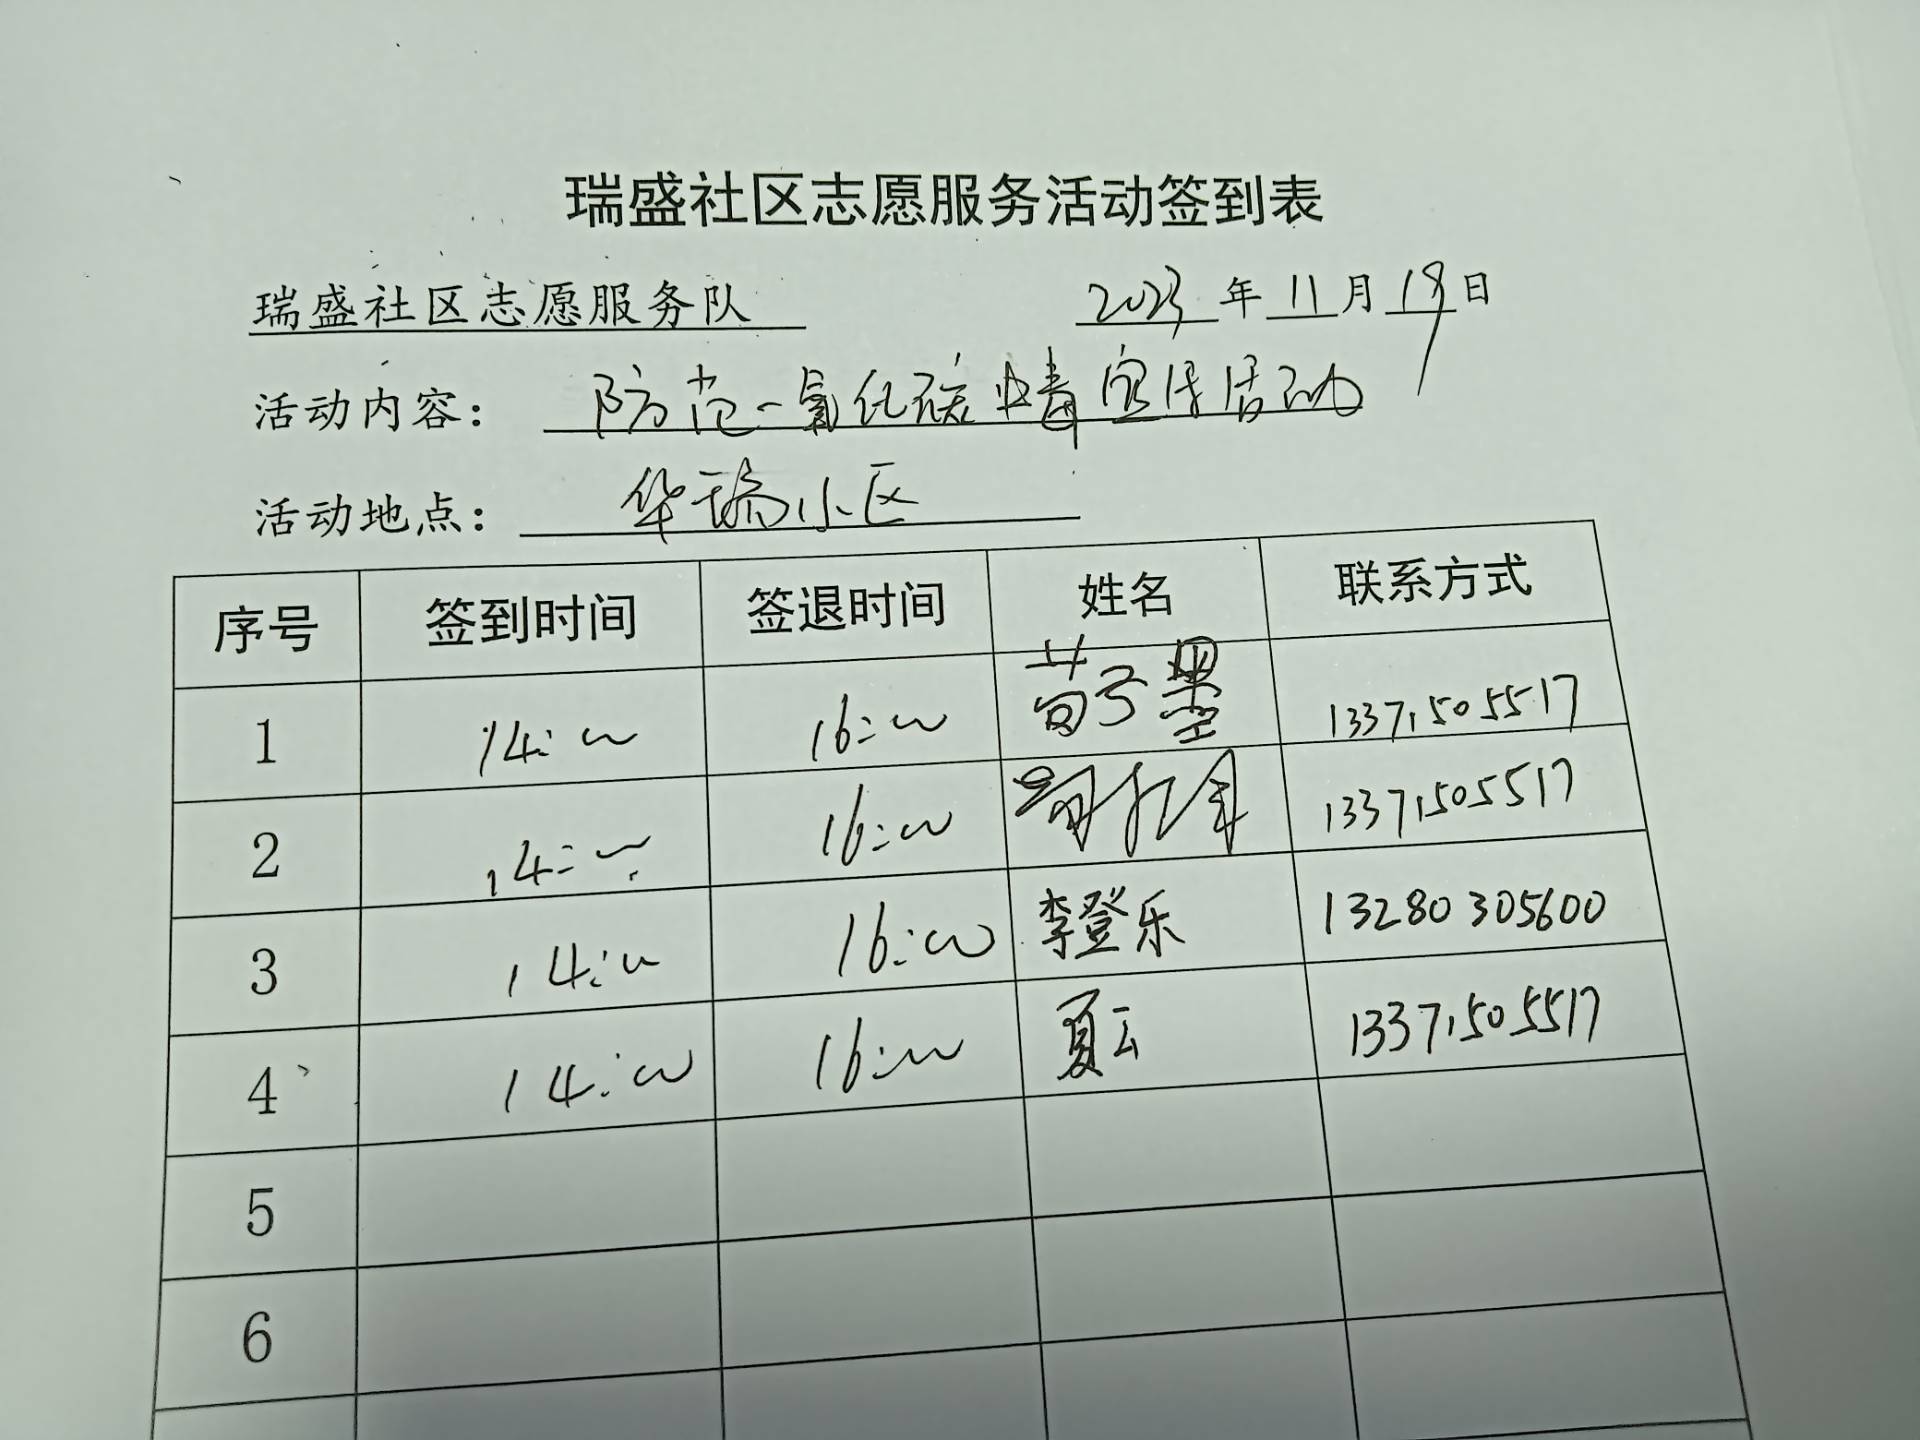 瑞盛社区志愿服务活动签到表
瑞盛社区志愿服务队 2023年11月19日
活动内容: 防范一氧化碳中毒宣传活动
活动地点: 华瑞小区
序号 签到时间 签退时间 姓名 联系方式
1 14:00 16:00 荀子墨 13371505517
2 14:00 16:00 13371505517
3 14:00 16:00 李登乐 13280305600
4 14:00 16:00 夏云 13371505517
5
6